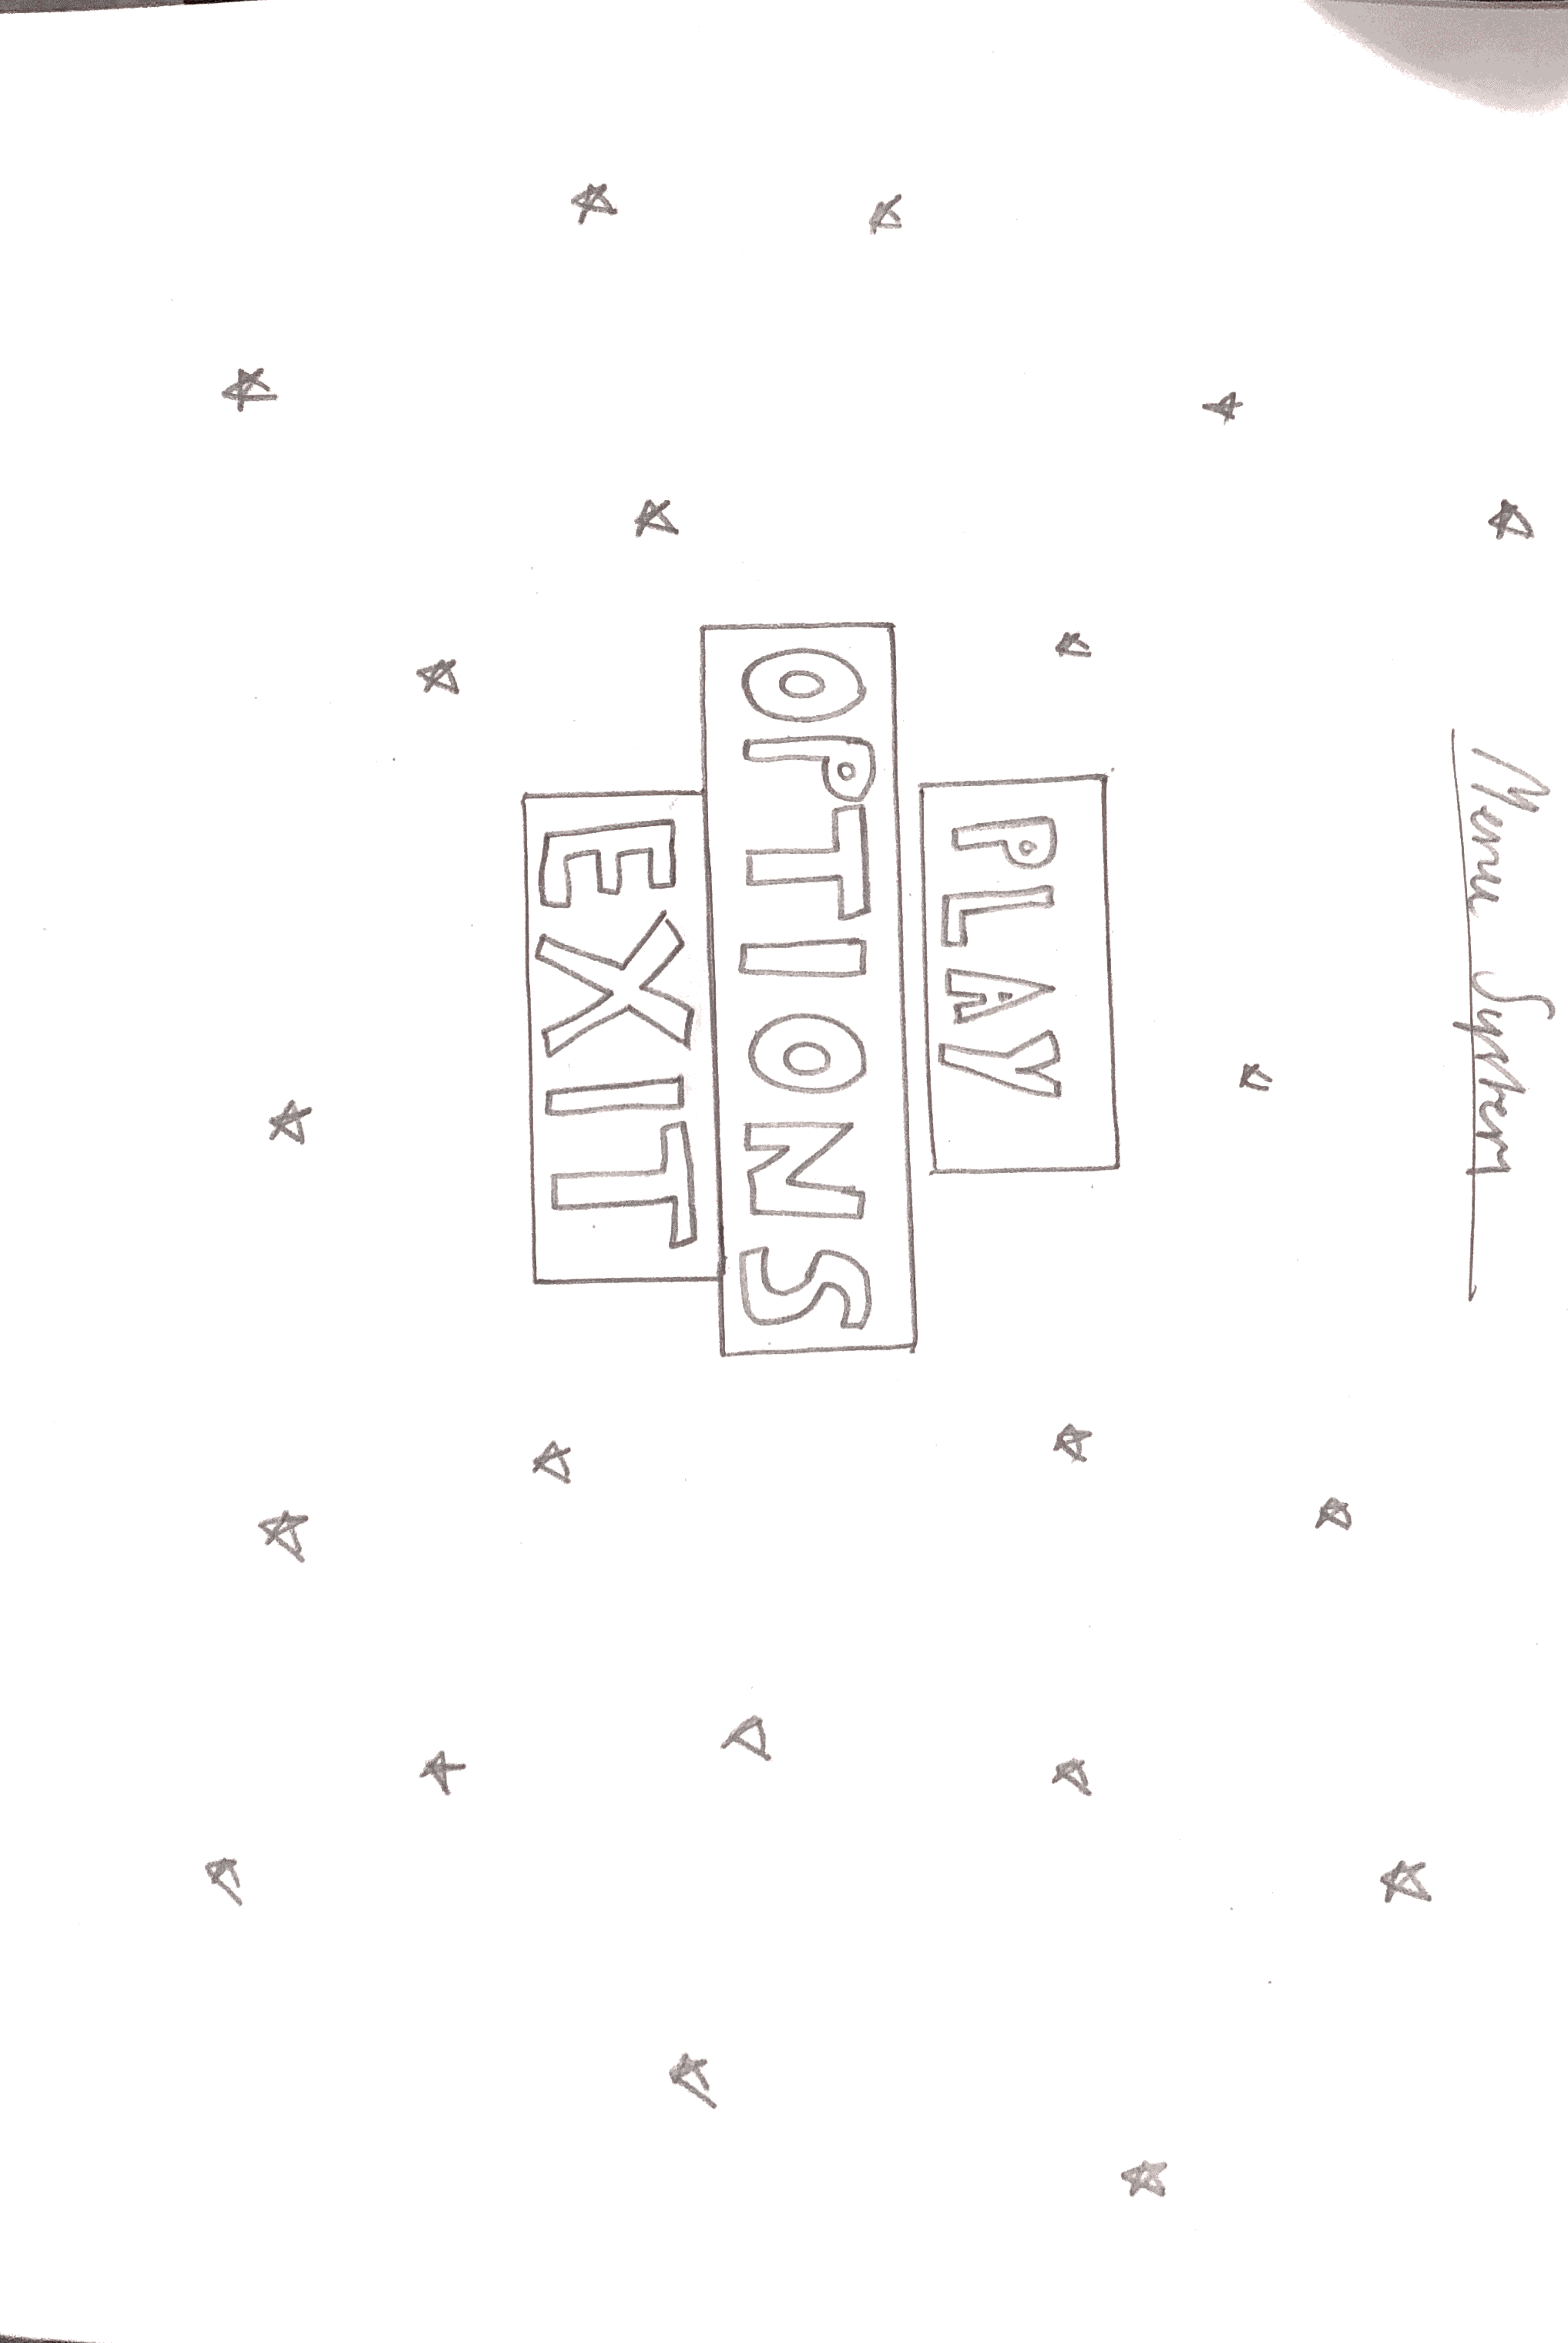 Menu System
PLAY
OPTIONS
EXIT